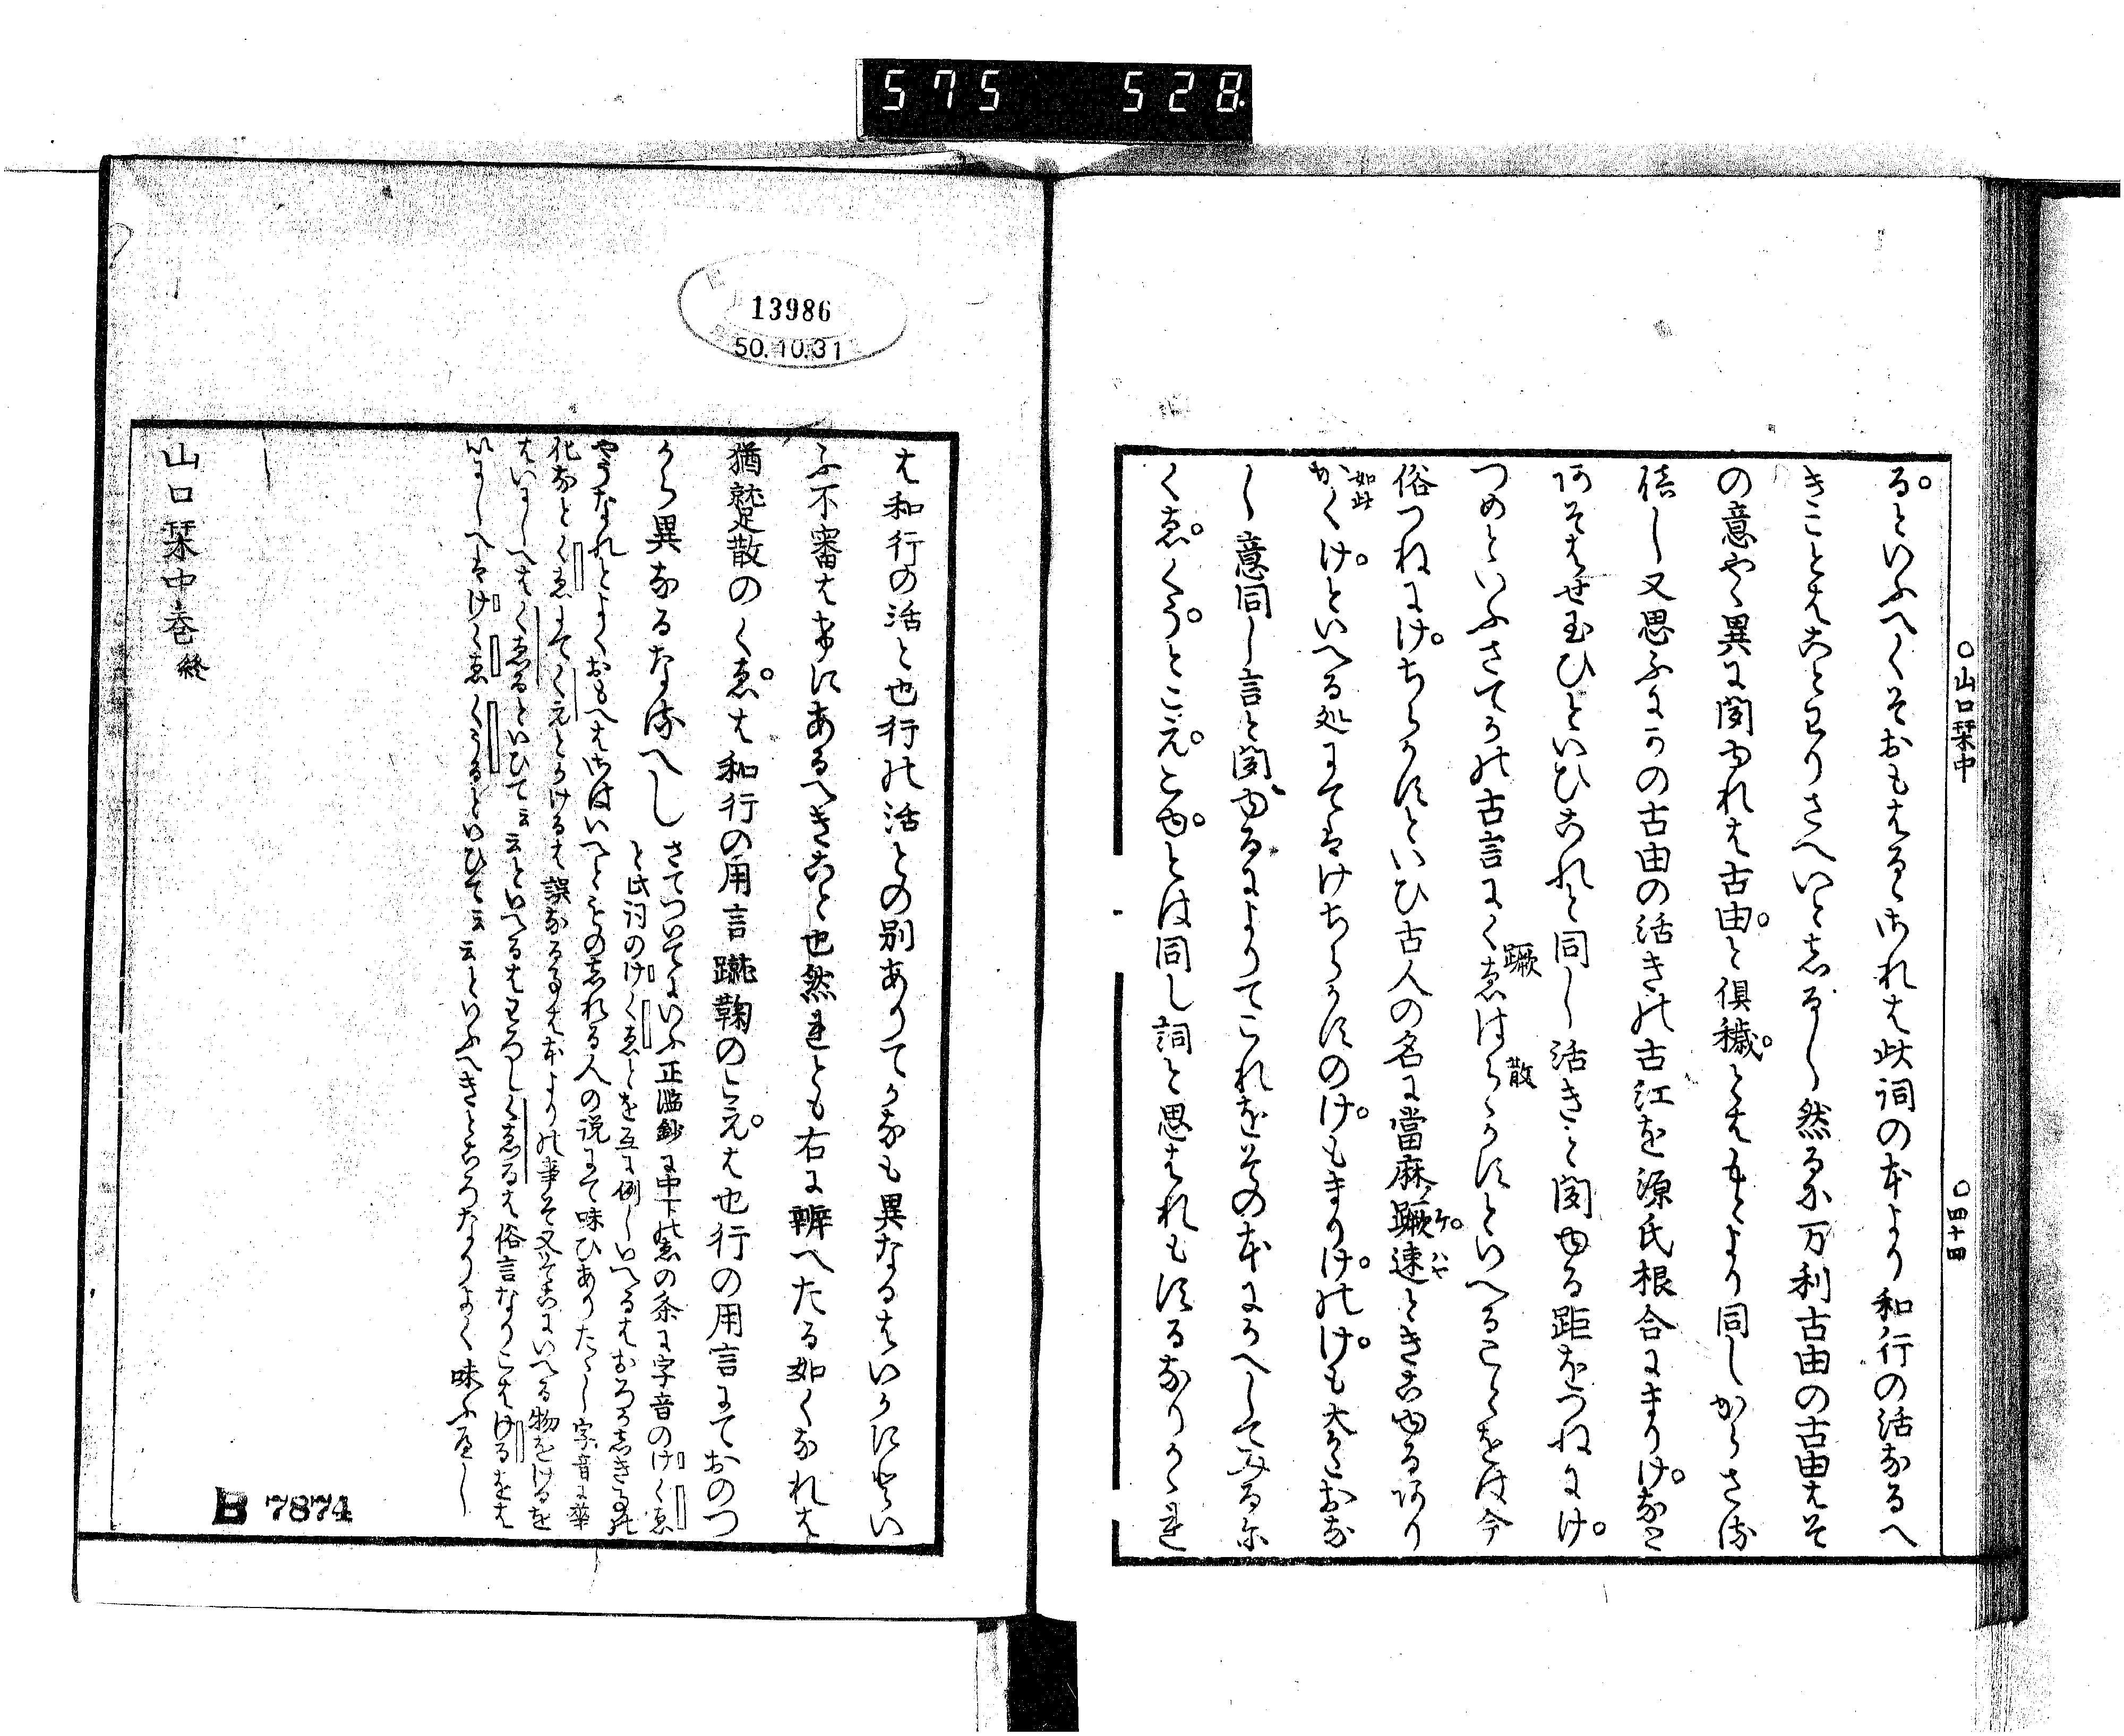 575 528
○山口栞中 ○四十四
るといふへくそおもはるゝ此れは此詞の本より和行の活なるへ
きことはことわりさへいとしるし然るに万利古由の古由はそ
の意やゝ異に聞ゆれは古由と俱穢とはもとより同しからさる
又思ふにかの古由の活きの古江を源氏根合にまりけなと
あそはせ玉ひといひこれと同し活きと聞ゆる距をつねにけ
つめといふさてかの古言にくゑはらゝかすといへることをは今
蹶 散
俗つねにけちらかすといひ古人の名に當麻蹶速ときこゆるあり
ケハヤ
如此
かくけといへる処にてはけちらかすのけもまりけのけも大かたおな
し意同し言と聞ゆるによりてこれをその本にかへしてみるに
くゑくうとこえこゆとは同し詞と思はれもするなりかくれ
は和行の活と也行の活との別ありてかなも異なるはいかにとい
ふ不審はまにあるへきこと也然れとも右に辨へたる如くなれは
猶蹵散のくゑは和行の用言蹴鞠のこえは也行の用言にておのつ
から異なるなるへし
さてついてにいふ正濫鈔に中下のゑの条に字音のけくゑ
と此詞のけくゑとを互に例しいへるはおろかしき事の
やうなれとよくおもへは此はいへともの しれる人の説にて味ひありたゝし字音に華
化なとくゑにてくえとかけるは誤なる事は本よりの事そ又そこにいへる物をけるを
はいにしへはくゑるといひて云云といへるはわろしくゑるは俗言なりこはけるをは
いにしへはけくゑくうるといひて云云といふへきところなりよく味ふへし
山口栞中巻 終
13986
50.10.31
B 7874